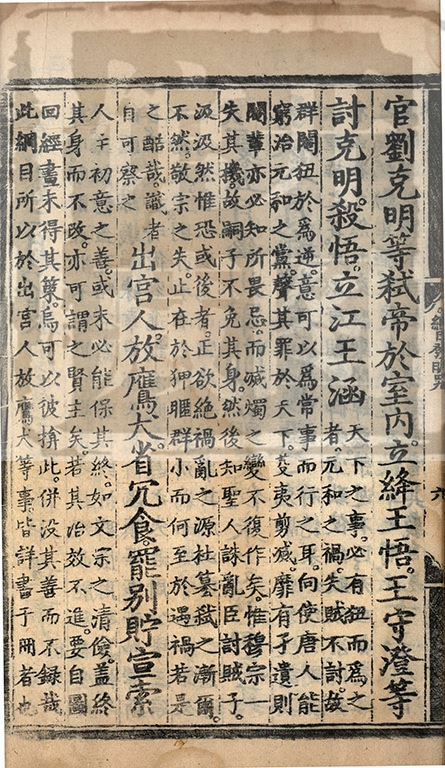 官劉克明等弑帝於室内。立絳王悟。王守澄等
討克明。殺悟。立江王涵
天下之事。必有狃而爲之
者。元和之禍。失賊不討。故
群閹狃於爲逆。意可以爲常事而行之耳。向使唐人能
窮治元和之黨。聲其罪於天下。芟夷剪滅。靡有孑遺則
閹輩亦必知所畏忌。而滅燭之變不復作矣。惟穆宗一
失其機。故嗣子不免其身。然後知聖人誅亂臣討賊子。
汲汲然惟恐或後者。正欲絶禍亂之源。杜簒弑之漸爾。
不然。敬宗之失。止在於狎暱群小而何至於遇禍若是
之酷哉。識者
自可察之
出宮人。放鷹犬。省冗食。罷別貯宣索
人主初意之善。或未必能保其終。如文宗之清儉。蓋終
其身而不改。亦可謂之賢主矣。若其治效不進。要自圖
回經畫未得其。烏可以彼揜此。併没其善而不録哉
此綱目所以於出宮人放鷹犬等事。皆詳書于冊者也
六